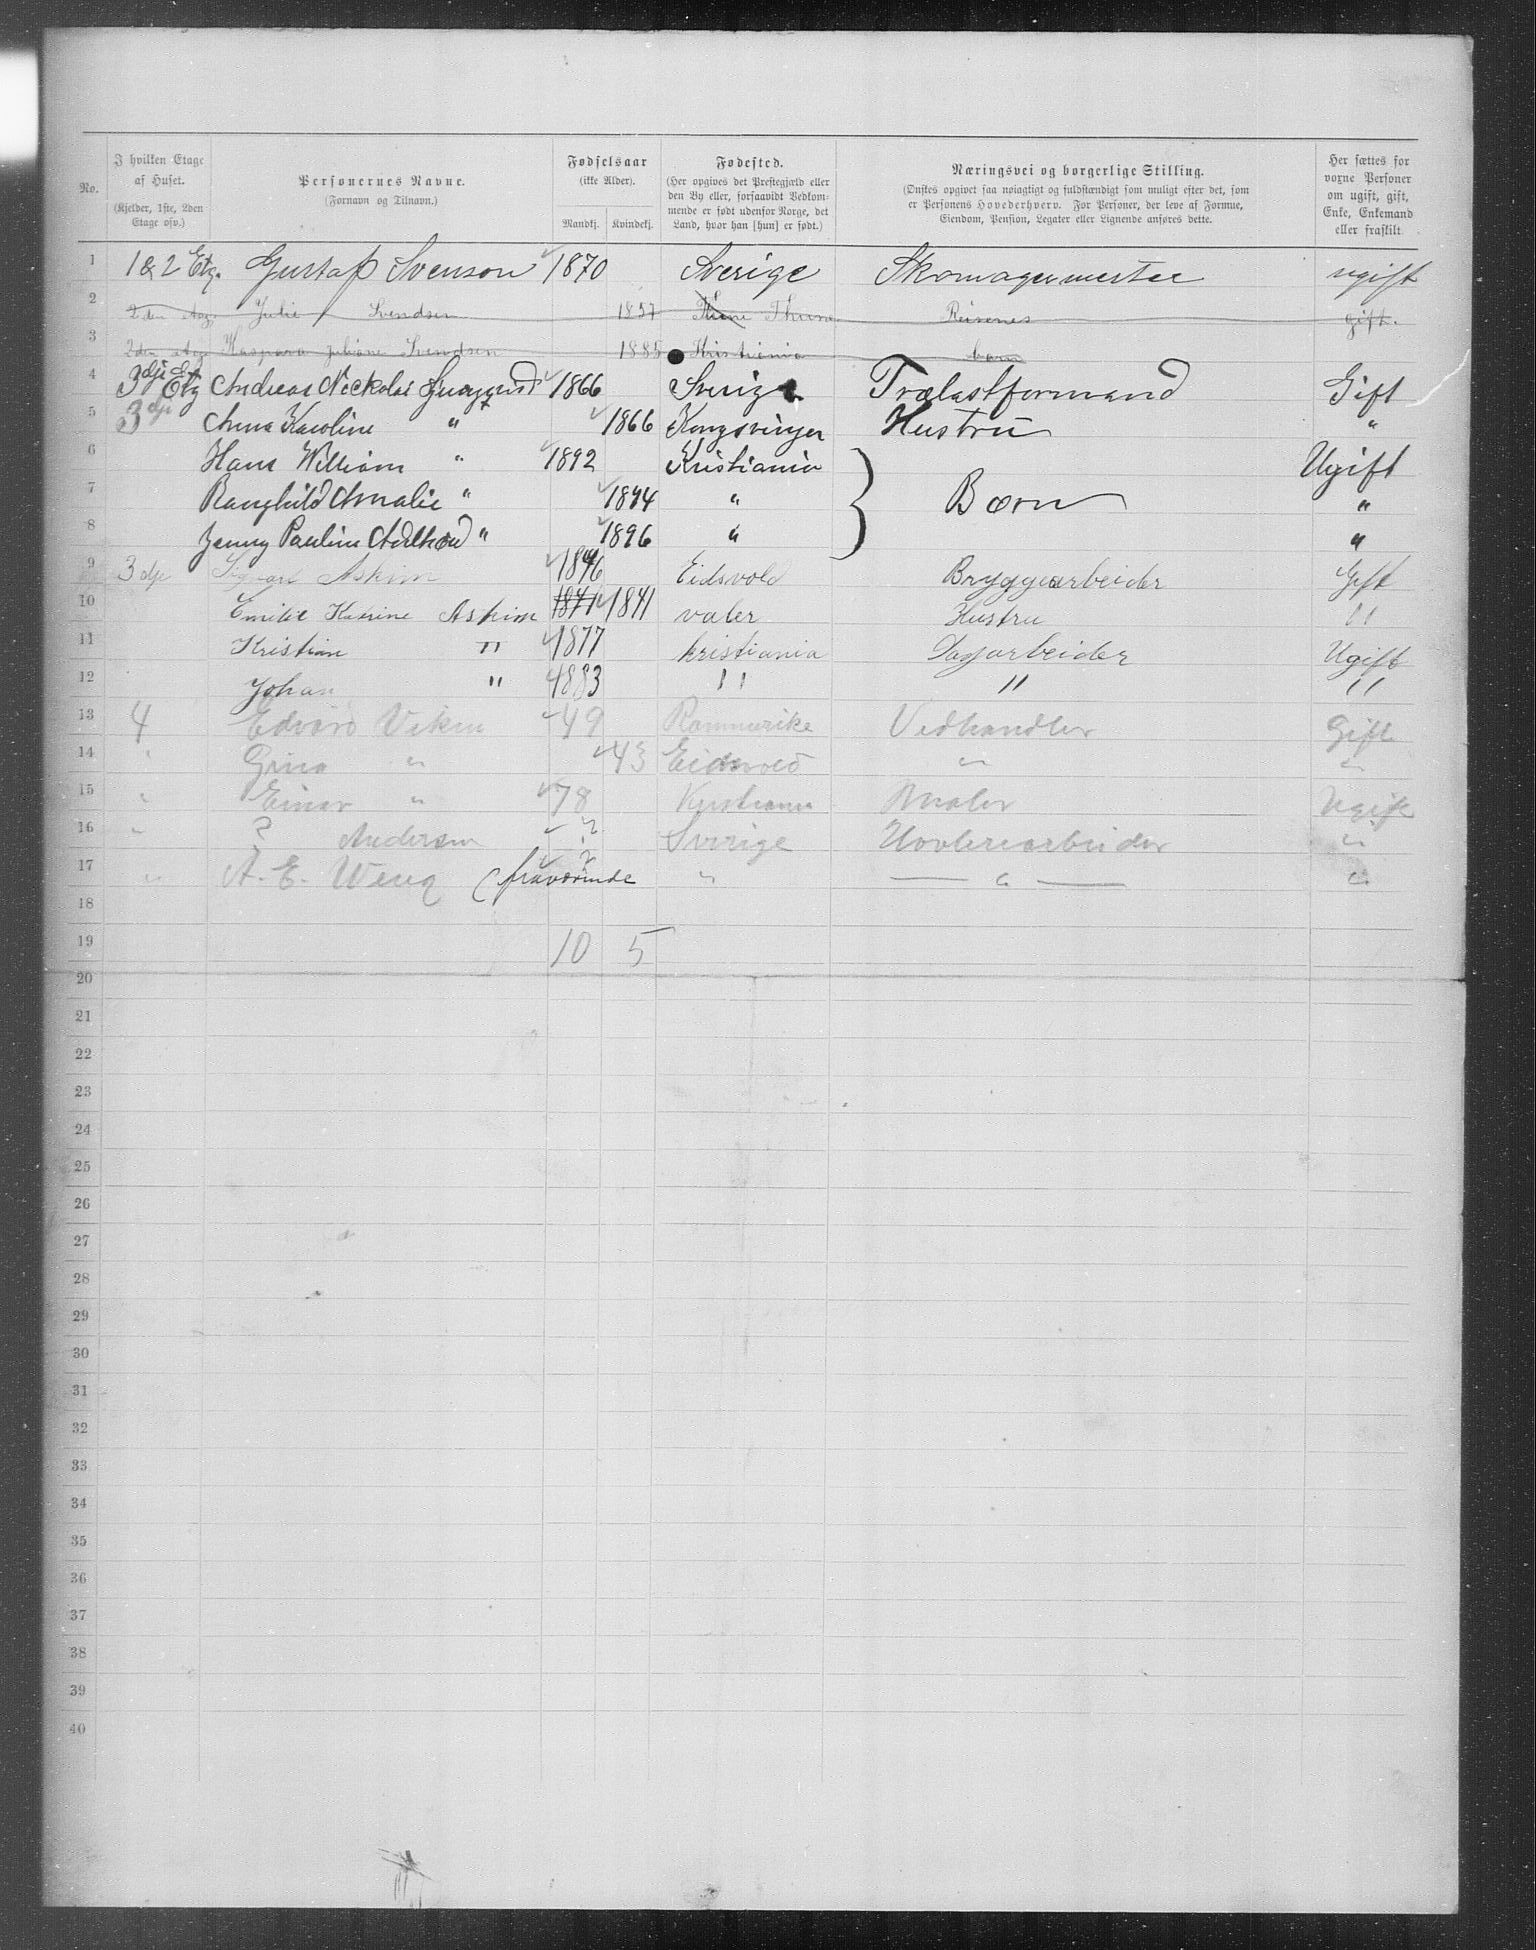 No.
I hvilken Etage af Huset. (Kjelder, 1ste, 2den Etage osv.)
Personernes Navne. (Fornavn og Tilnavn.)
Fødselsaar (ikke Alder). Mandkj. Kvindekj.
Fødested. (Her opgives det Prestegjæld eller den By eller, forsaavidt Vedkommende er født udenfor Norge, det Land, hvor han [hun] er født.)
Næringsvei og borgerlige Stilling. (Ønskes opgivet saa nøiagtigt og fuldstændigt som muligt efter det, som er Personens Hovederhverv. For Personer, der leve af Formue, Eiendom, Pension, Legater eller Lignende anføres dette.
Her sættes for voxne Personer om ugift, gift, Enke, Enkemand eller fraskilt.
1 1 & 2 Etg. Gustaf Svenson 1870 Sverige Skomagermester ugift
2 2den Julie Svendsen 1857 Reisenes gift.
3 2den Kaspara Juliane Svendsen 1885 Kristiania barn
4 3dje Etg Andreas Nickolai 1866 Sverige Trælastformand Gift
5 3dje Anna Karoline " 1866 Kongsvinger Hustru "
6 Hans William " 1892 Kristiania Ugift
7 Ranghild Amalie " 1894 " Børn "
8 Jenny Pauline " 1896 " "
9 3dje Sigvart Askim 1846 Eidsvold Bryggearbeider Gift
10 Emilie Katrine Askim 1841 1841 valer Hustru "
11 Kristian " 1877 kristiania Dagarbeider Ugift
12 Johan " 1883 " " "
13 4 Edvard Viken 49 Rommerike Vedhandler Gift
14 " Grina " 43 Eidsvold " "
15 " Einar " 78 Kristiania Maler Ugift
16 " ? Andersen ? Sverige Høvleriarbeider "
17 " A. E. Weng (fraværende ? " " "
18
19 10 5
20
21
22
23
24
25
26
27
28
29
30
31
32
33
34
35
36
37
38
39
40